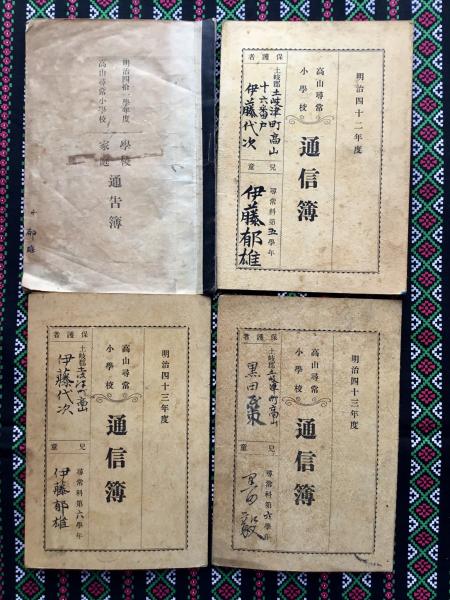 明治四拾一學年度
高山尋常小學校
學校
家庭
通告簿
郁雄
明治四十二年度
高山尋常
小學校
通信簿
保護者
土岐郡土岐津町高山
十六番戸
伊藤代次
兒童
尋常科第五學年
伊藤郁雄
明治四十三年度
高山尋常
小學校
通信簿
保護者
土岐郡土岐津町高山
伊藤代次
兒童
尋常科第六學年
伊藤郁雄
明治四十三年度
高山尋常
小學校
通信簿
保護者
土岐郡土岐津町高山
黒田
兒童
尋常科第六學年